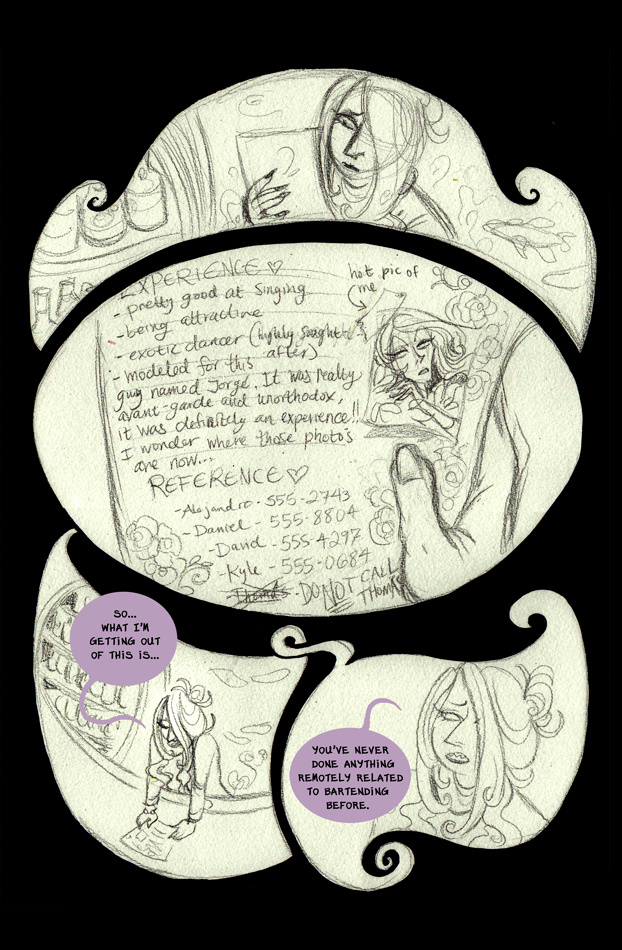 EXPERIENCE ♡
hot pic of
me
- pretty good at singing
- being attractive
- exotic dancer (highly sought-
after)
- modeled for this really
guy named Jorge. It was
avant-garde and unorthodox,
it was definitely an experience!!
I wonder where those photo's
are now...
REFERENCE ♡
- Alejandro - 555-2743
- Daniel - 555-8804
- David - 555-4297
- Kyle - 555-0684
- Thomas - DO NOT CALL
THOMAS
SO...
WHAT I'M
GETTING OUT
OF THIS IS...
YOU'VE NEVER
DONE ANYTHING
REMOTELY RELATED
TO BARTENDING
BEFORE.